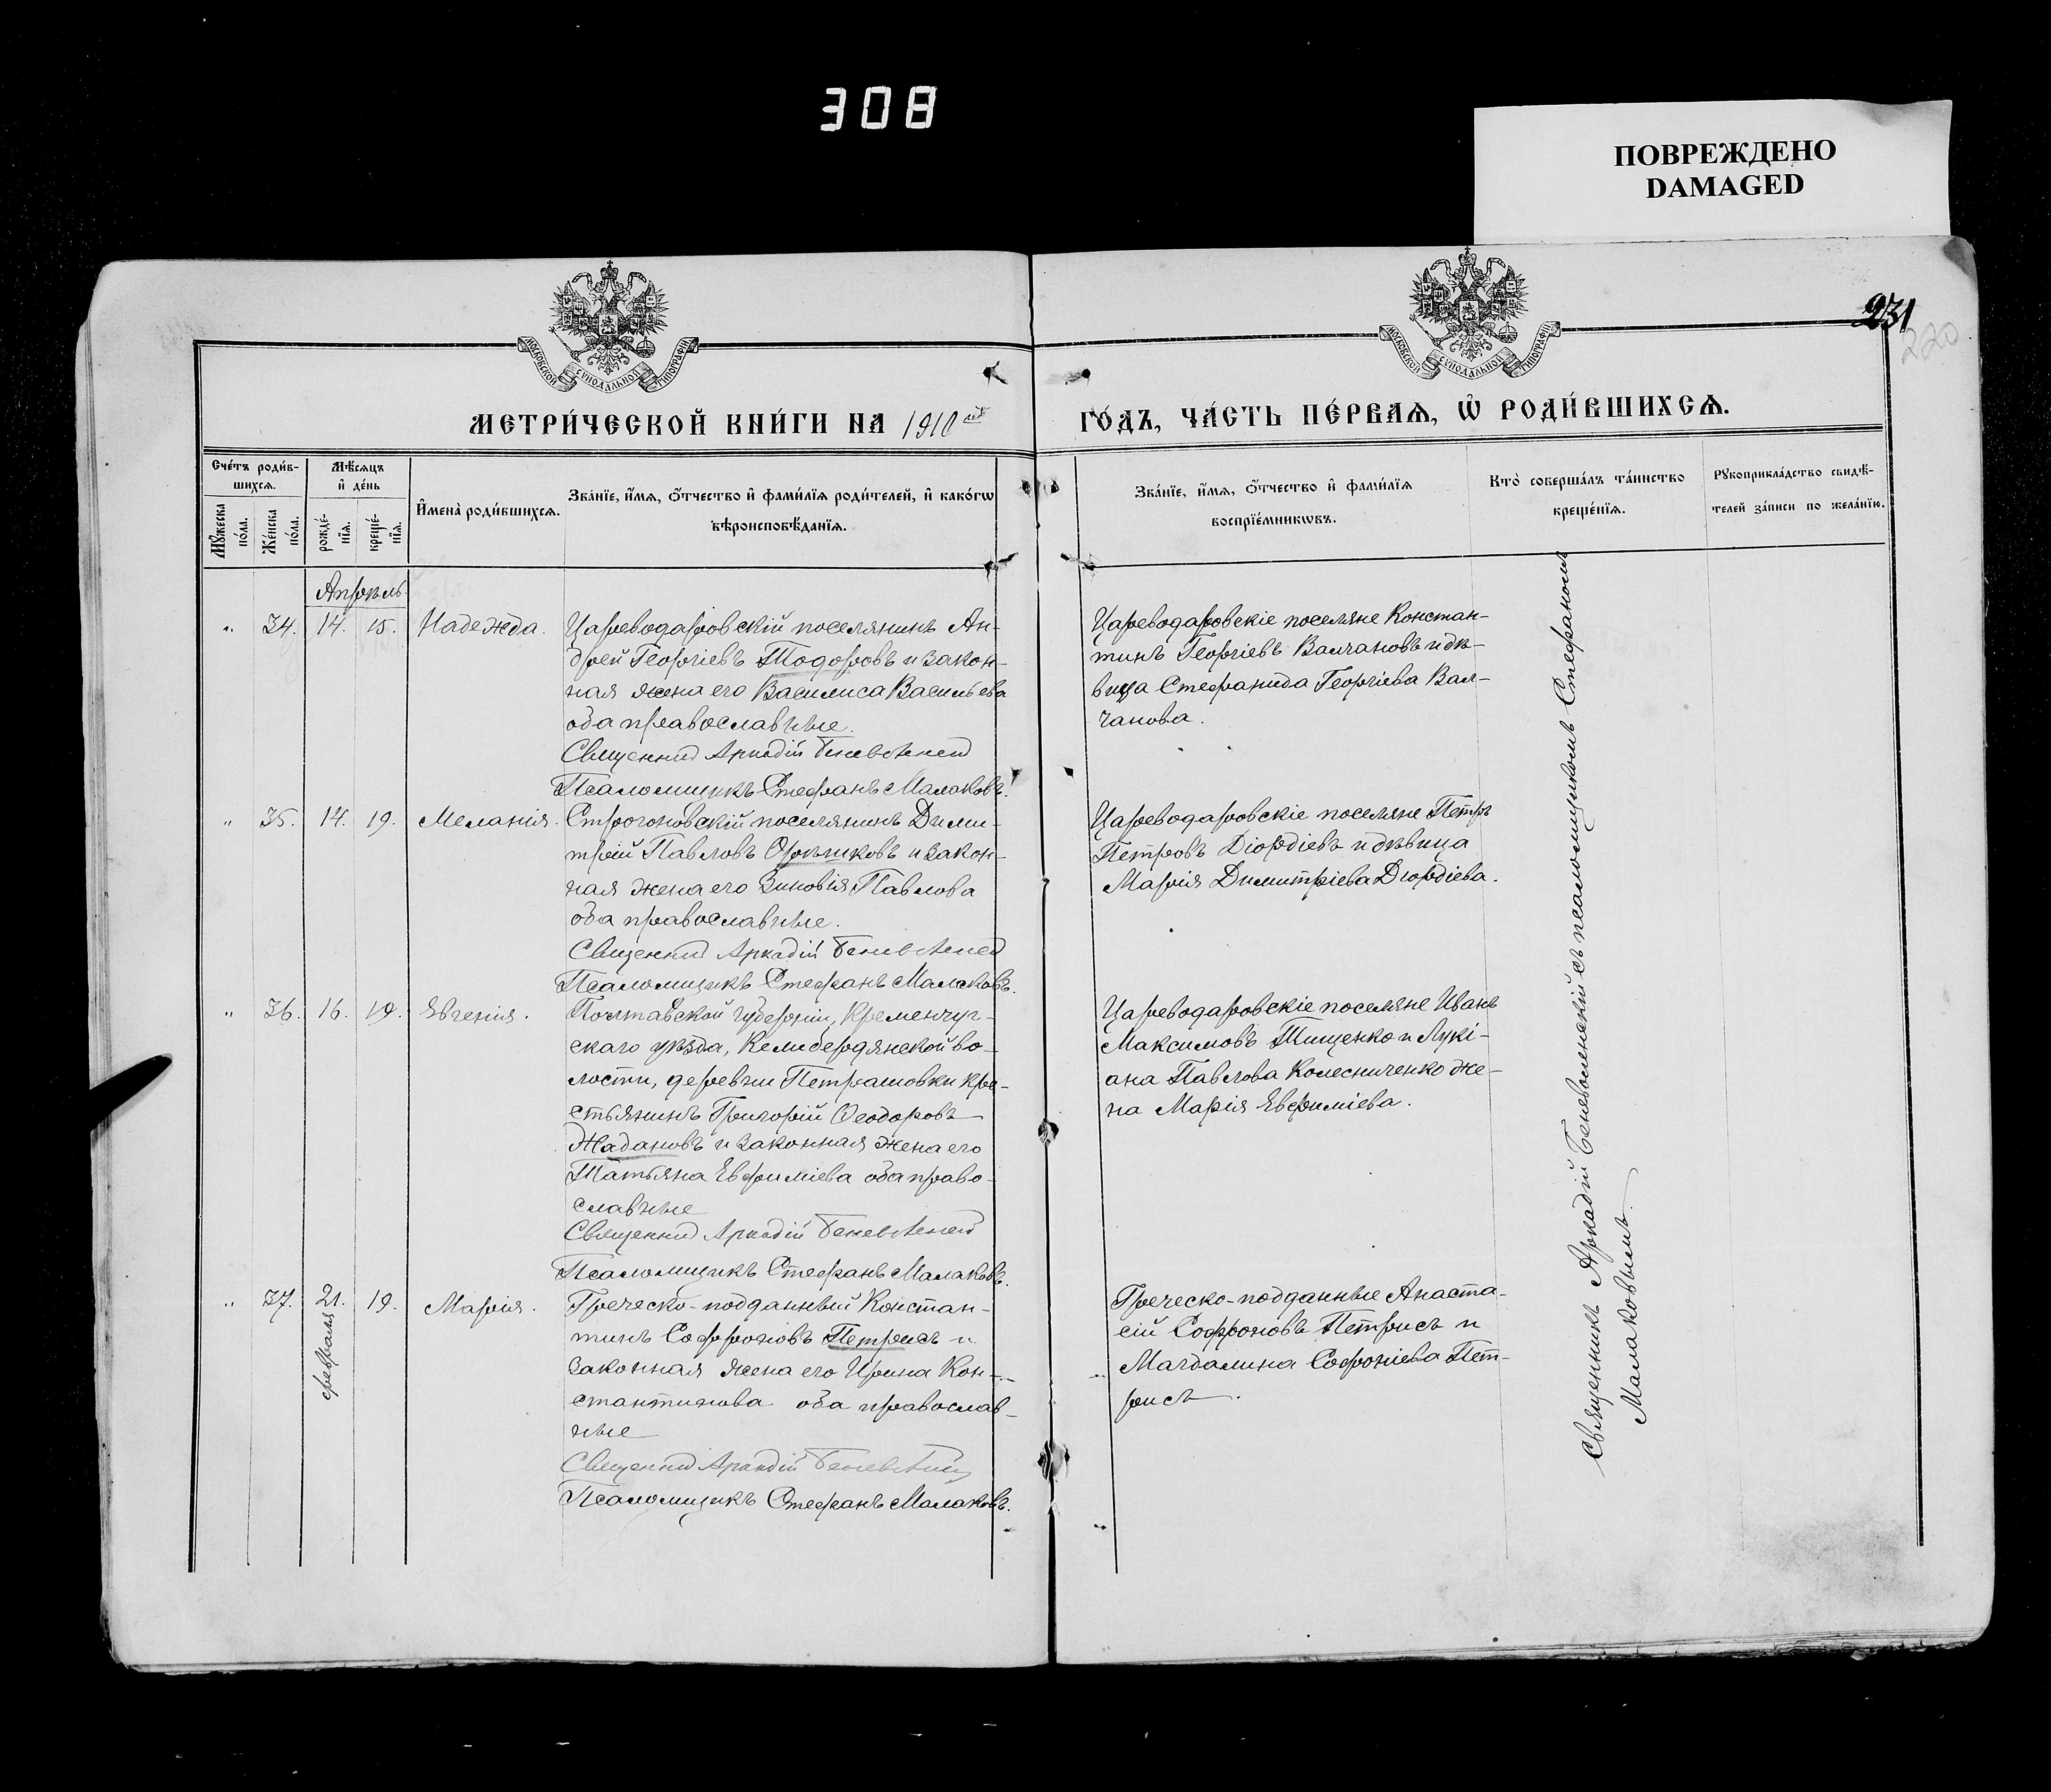 308
ПОВРЕЖДЕНО
DAMAGED
МОСКОВСКОЙ СѴНОДАЛЬНОЙ ТИПОГРАФІИ
МОСКОВСКОЙ СѴНОДАЛЬНОЙ ТИПОГРАФІИ
231
220
МЕТРИ́ЧЕСКОЙ КНИ́ГИ НА 1910
ГО́ДЪ, ЧА́СТЬ ПЕ́РВАѦ, Ѡ҆ РОДИ́ВШИХСѦ.
Сче́тъ роди́в-
шихсѧ.
Мѣ́сѧцъ
и҆ де́нь
Мꙋ́жеска
по́ла.
Же́нска
по́ла.
рожде́-
нїѧ.
креще́-
нїѧ.
И҆мена̀ роди́вшихсѧ.
Зва́нїе, и҆́мѧ, ѻ҆́тчество и҆ фами́лїѧ роди́телей, и҆ како́гѡ
вѣроисповѣ́данїѧ.
Зва́нїе, и҆́мѧ, ѻ҆́тчество и҆ фами́лїѧ
воспрїе́мникѡвъ.
Кто̀ соверша́лъ та́инство
креще́нїѧ.
Рꙋкоприкла́дство свидѣ́-
телей за́писи по жела́нїю.
Апрѣль
" 34. 14. 15. Надежда.
Цареводаровскій поселянинъ Ан-
дрей Георгіевъ Тодоровъ и закон-
ная жена его Василиса Васильева
оба православные.
Священник Аркадій Беневоленский
Псаломщикъ Стефанъ Малаковъ.
Цареводаровскіе поселяне Констан-
тинъ Георгіевъ Валчановъ и дѣ-
вица Стефанида Георгіева Вал-
чанова.
" 35. 14. 19. Меланія.
Строгоновскій поселянинъ Дими-
трій Павловъ Орѣшковъ и закон-
ная жена его Зиновія Павлова
оба православные.
Священник Аркадій Беневоленский
Псаломщикъ Стефанъ Малаковъ.
Цареводаровскіе поселяне Петръ
Петровъ Діордіевъ и дѣвица
Марія Димитріева Діордіева.
" 36. 16. 19. Евгенія.
Полтавской губерніи, Кременчуг-
скаго уѣзда, Келибердянской во-
лости, деревни Петрашовки кре-
стьянинъ Григорій Ѳеодоровъ
Жадановъ и законная жена его
Татьяна Евфиміева оба право-
славные
Священник Аркадій Беневоленский
Псаломщикъ Стефанъ Малаковъ.
Цареводаровскіе поселяне Иванъ
Максимовъ Тищенко и Лукі-
ана Павлова Колесниченко же-
на Марія Евфиміева.
" 37. 21. 19. Марія.
февраля
Греческо-подданный Констан-
тинъ Софроновъ Петрисъ и
законная жена его Ирина Кон-
стантинова оба православ-
ные
Священник Аркадій Беневоленский
Псаломщикъ Стефанъ Малаковъ.
Греческо-подданные Анаста-
сій Софроновъ Петрисъ и
Магдалина Софроніева Пет-
рисъ.
Священникъ Аркадій Беневоленскій съ псаломщикомъ Стефаномъ
Малаковымъ.